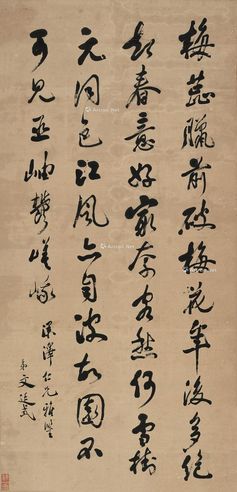 梅蕊臘前破梅花年後多絕
知春意好最奈客愁何雪樹
元同色江風亦自波故園不
可見巫岫鬱嵯峨
澤仁兄雅鑒
弟文廷式